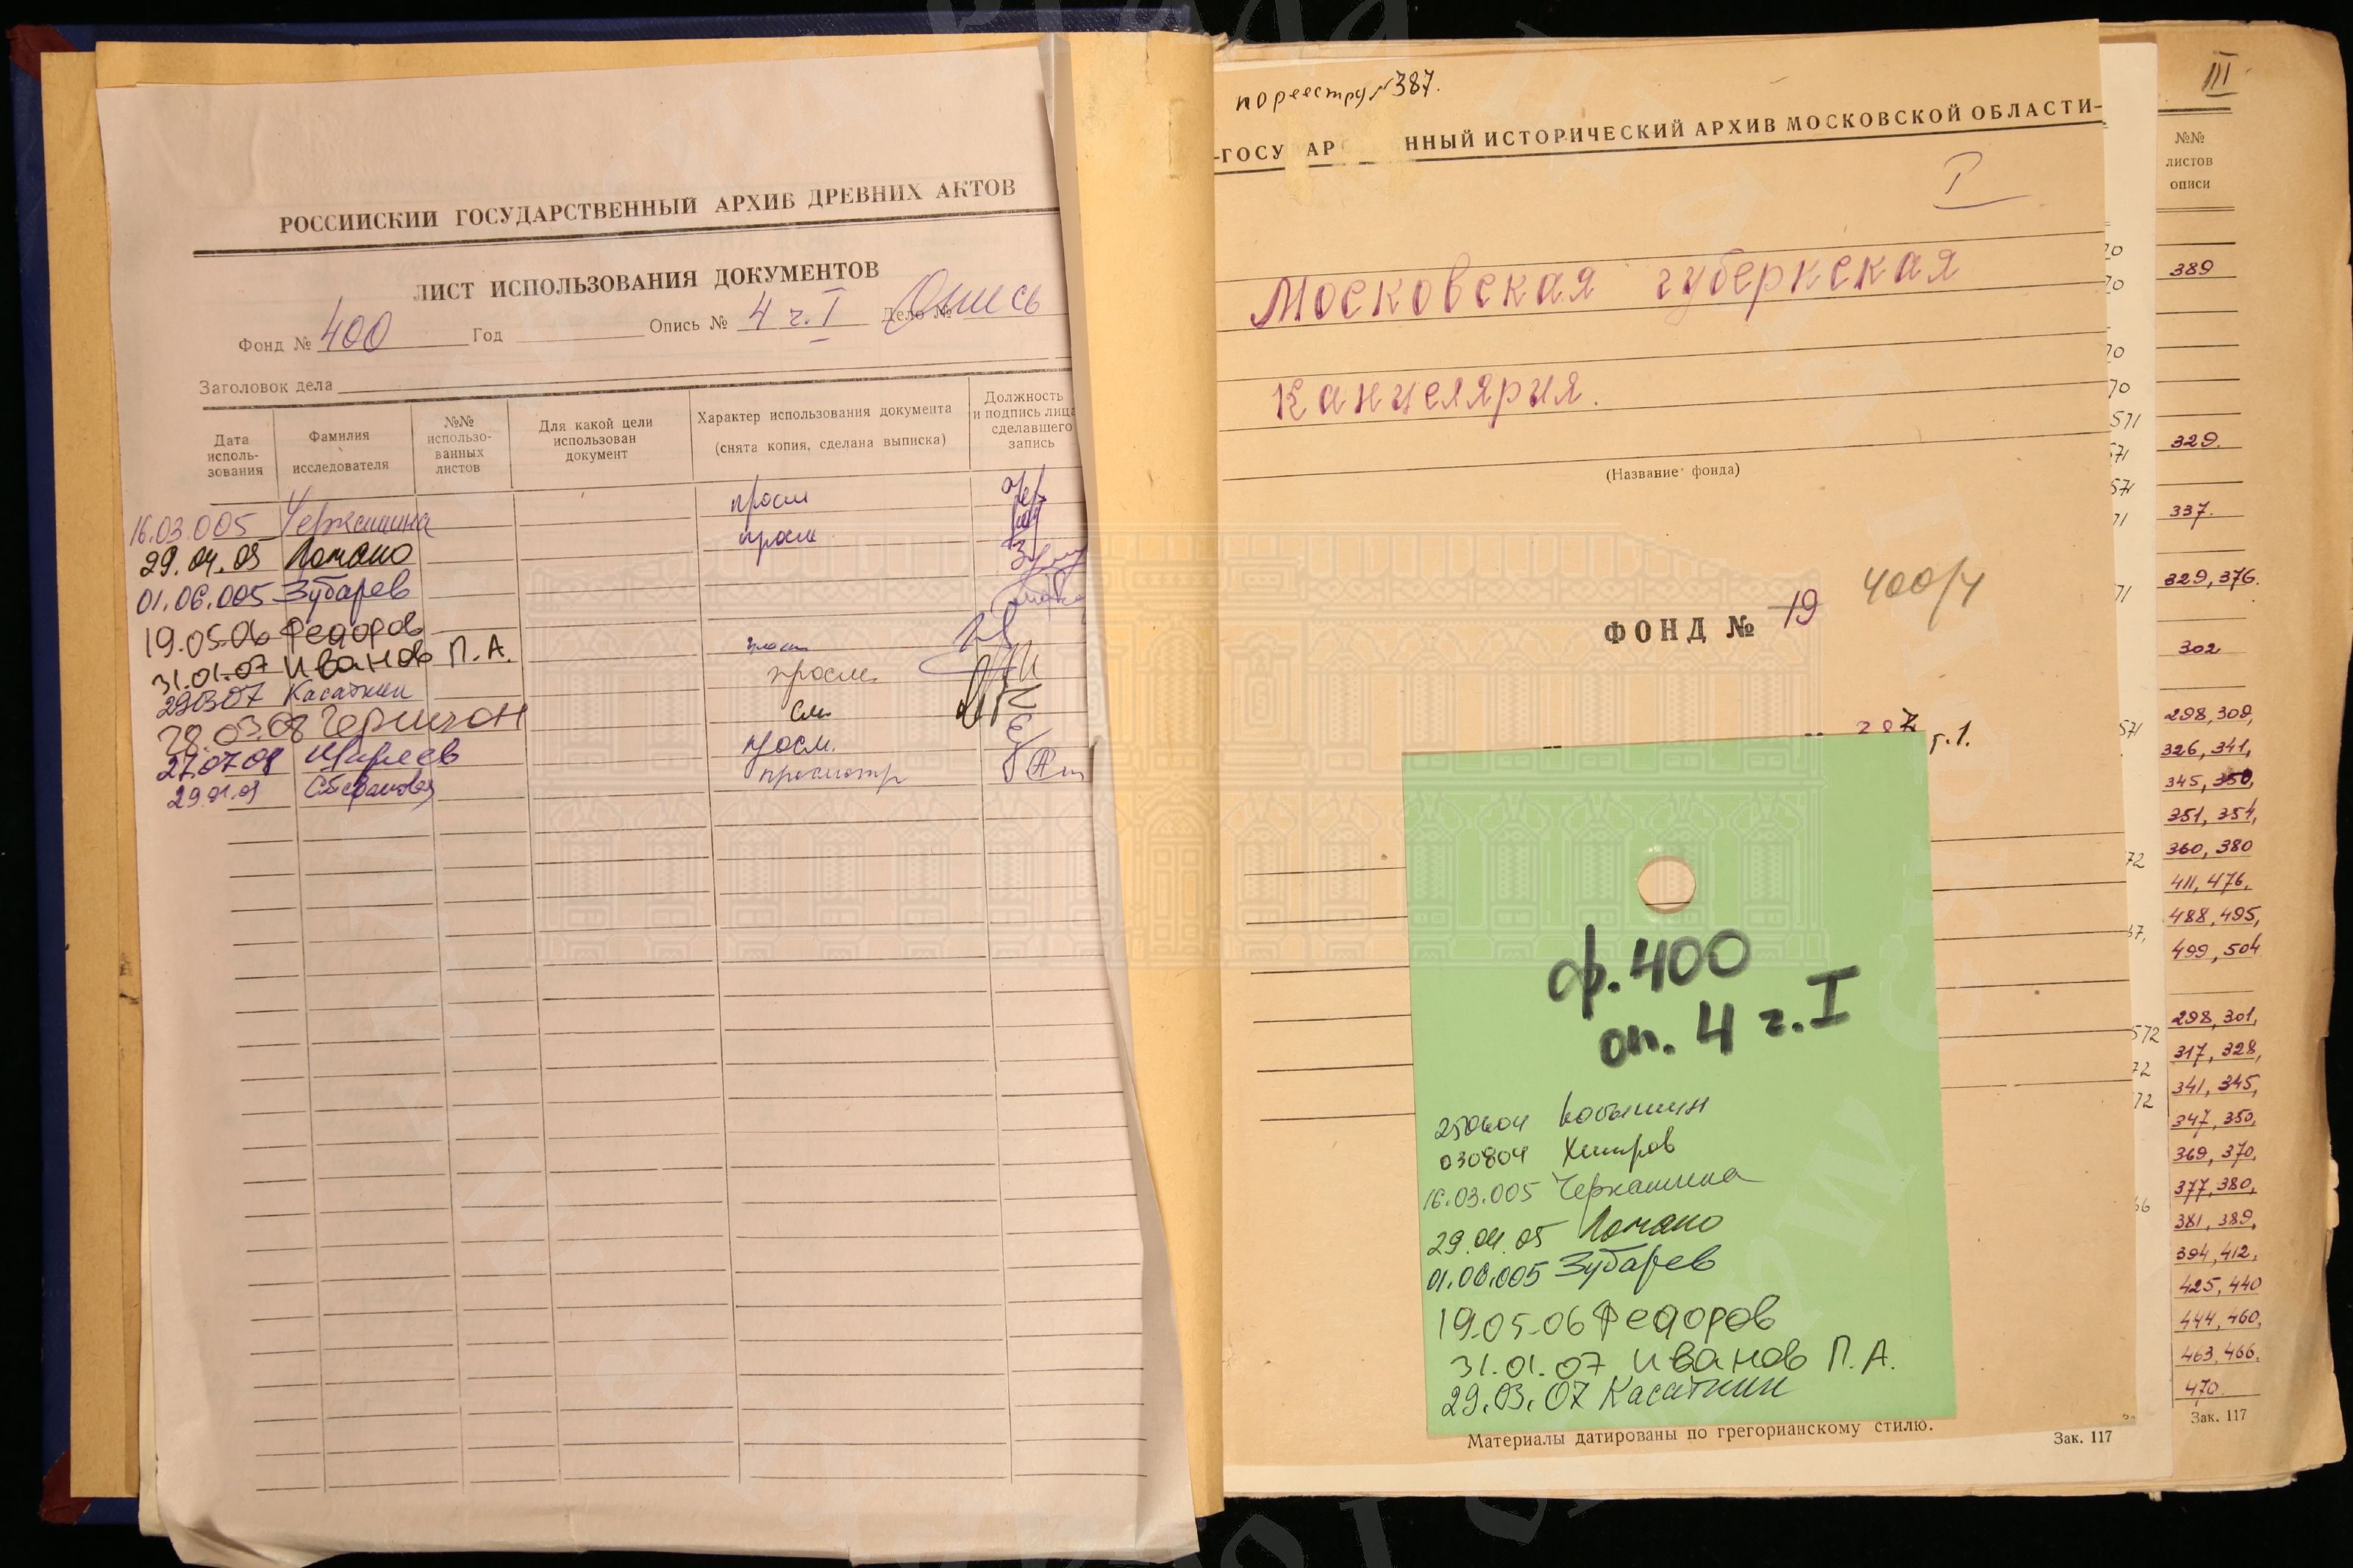 РОССИЙСКИЙ ГОСУДАРСТВЕННЫЙ АРХИВ ДРЕВНИХ АКТОВ
ЛИСТ ИСПОЛЬЗОВАНИЯ ДОКУМЕНТОВ
Фонд № 400 Год Опись № 4 ч. I Дело № Опись
Заголовок дела
Дата исполь-зования
Фамилия исследователя
№№ использо-ванных листов
Для какой цели использован документ
Характер использования документа (снята копия, сделана выписка)
Должность и подпись лица сделавшего запись
16.03.005 Черкашина просм
29.04.05 просм
01.06.005 Зубарев
19.05.06 Федоров
31.01.07 Иванов П.А. просм
29.03.07 Касаткин просм.
28.03.08 см
27.07.08 просм.
29.01.09 просмотр
по реестру № 387.
ГОСУ АР ННЫЙ ИСТОРИЧЕСКИЙ АРХИВ МОСКОВСКОЙ ОБЛАСТИ
I
Московская губернская
Канцелярия.
(Название фонда)
ФОНД № 19 400/4
387 г. 1.
ф. 400
оп. 4 ч. I
250604
030804 Хитров
16.03.005 Черкашина
29.04.05
01.06.005 Зубарев
19.05.06 Федоров
31.01.07 Иванов П.А.
29.03.07 Касаткин
Материалы датированы по грегорианскому стилю.
Зак. 117
III
№№
листов
описи
389
329.
337.
329, 376.
302
298, 309,
326, 341,
345, 350,
351, 354,
360, 380
411, 476,
488, 495,
499, 504
298, 301,
317, 328,
341, 345,
347, 350,
369, 370,
377, 380,
381, 389,
394, 412,
425, 440
444, 460,
463, 466,
470
Зак. 117